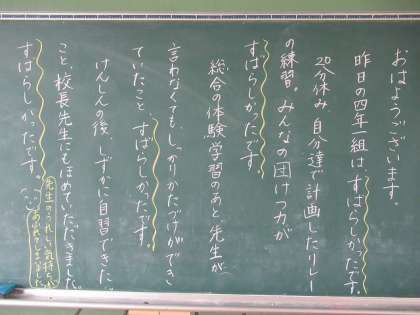 おはようございます。
昨日の四年一組は、すばらしかったです。
20分休み、自分達で計画したリレー
の練習。みんなの団けつ力が
すばらしかったです。
総合の体験学習のあと、先生が
言わなくてもしっかりかたづけができ
ていたこと、すばらしかったです。
けんしんの後、しずかに自習できた
こと、校長先生にもほめていただきました。
すばらしかったです。
先生のうれしい気持ちが
あふれてしまいました